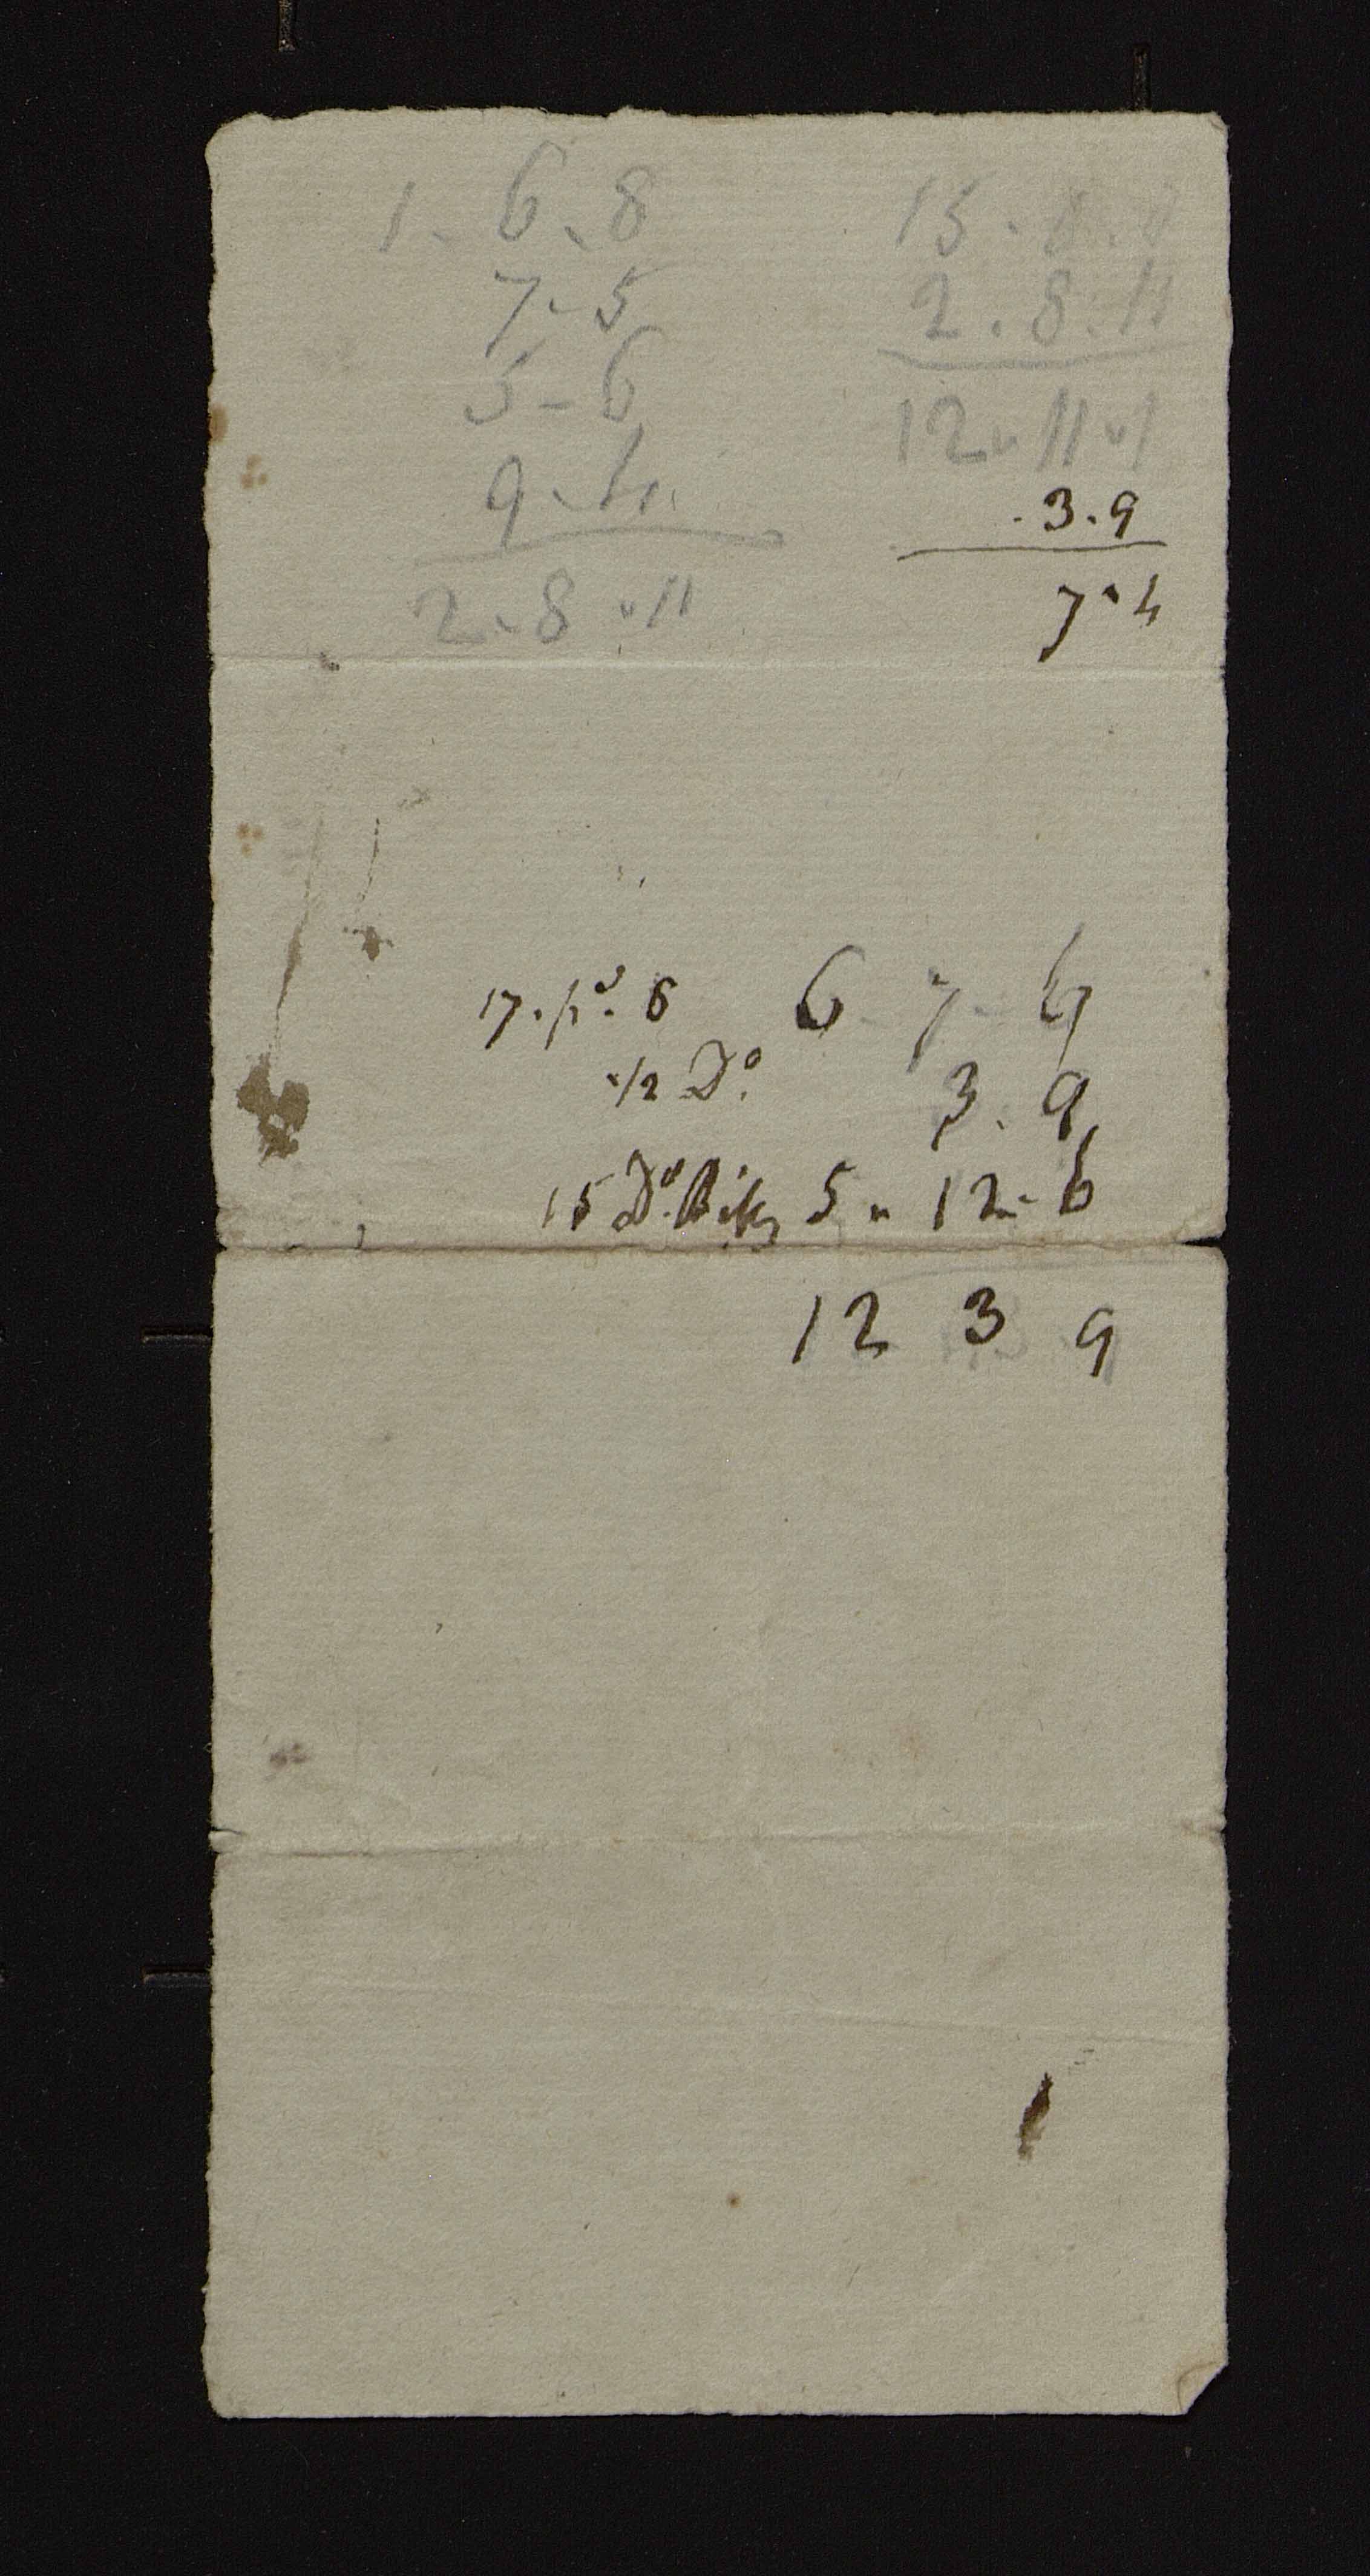 1 . 6 . 8
7 . 5
5 - 6
9 . 4
2 . 8 . 11
15 . 0 . 0
2 . 8 . 11
12 . 11 . 1
. 3 . 9
7 . 4
17 . ps. 6 7 -
1/2 Do. 3 . 9
15 Do. 5 . 12 . 6
12 3 9